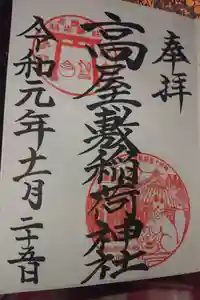 奉拝
高屋敷稲荷神社
令和元年十一月二十五日